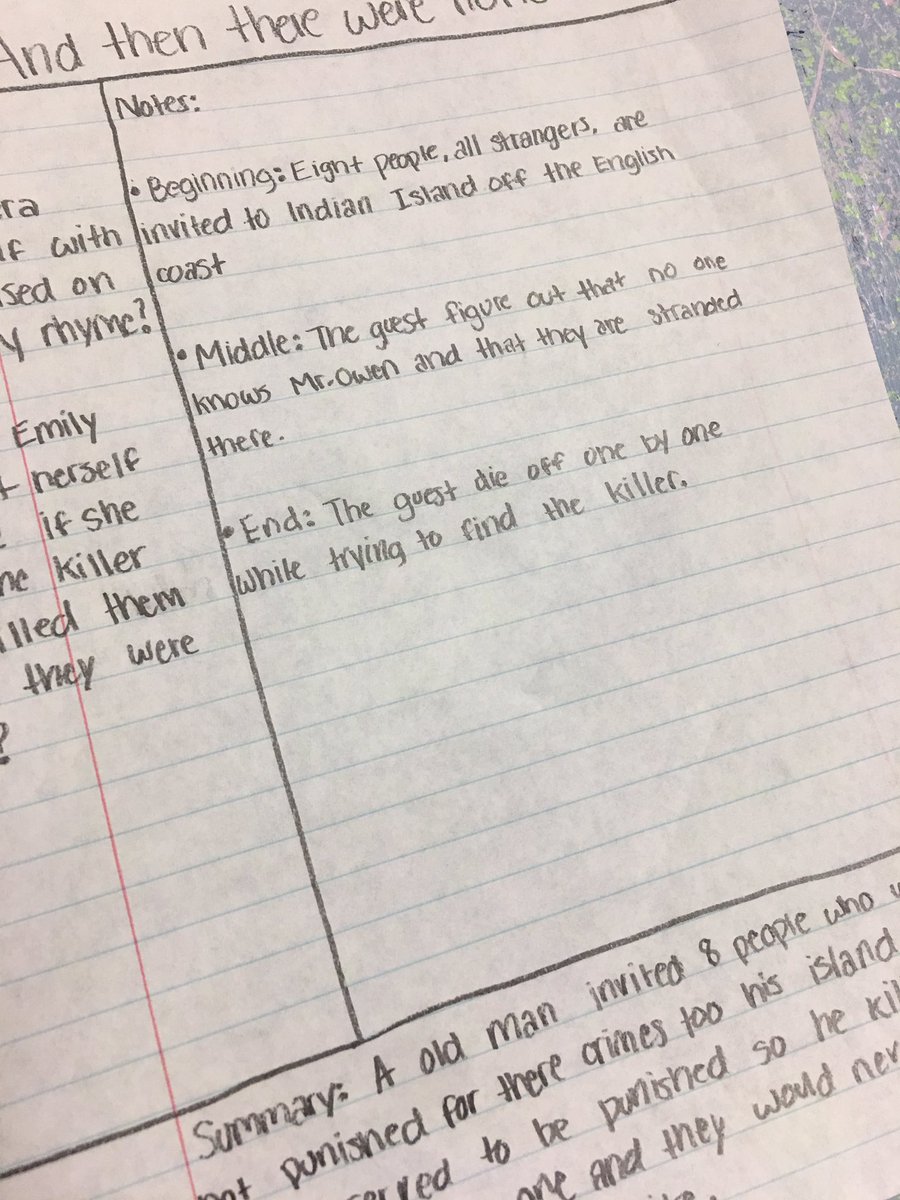 And then there were none
Notes:
• Beginning: Eight people, all strangers, are
invited to Indian Island off the English
coast
• Middle: The guest figure out that no one
knows Mr. Owen and that they are stranded
there.
• End: The guest die off one by one
while trying to find the killer.
with
on
rhyme?
Emily
herself
if she
killer
them
they were
?
Summary: A old man invited 8 people who
punished for there crimes too his island
to be punished so he
one and they would